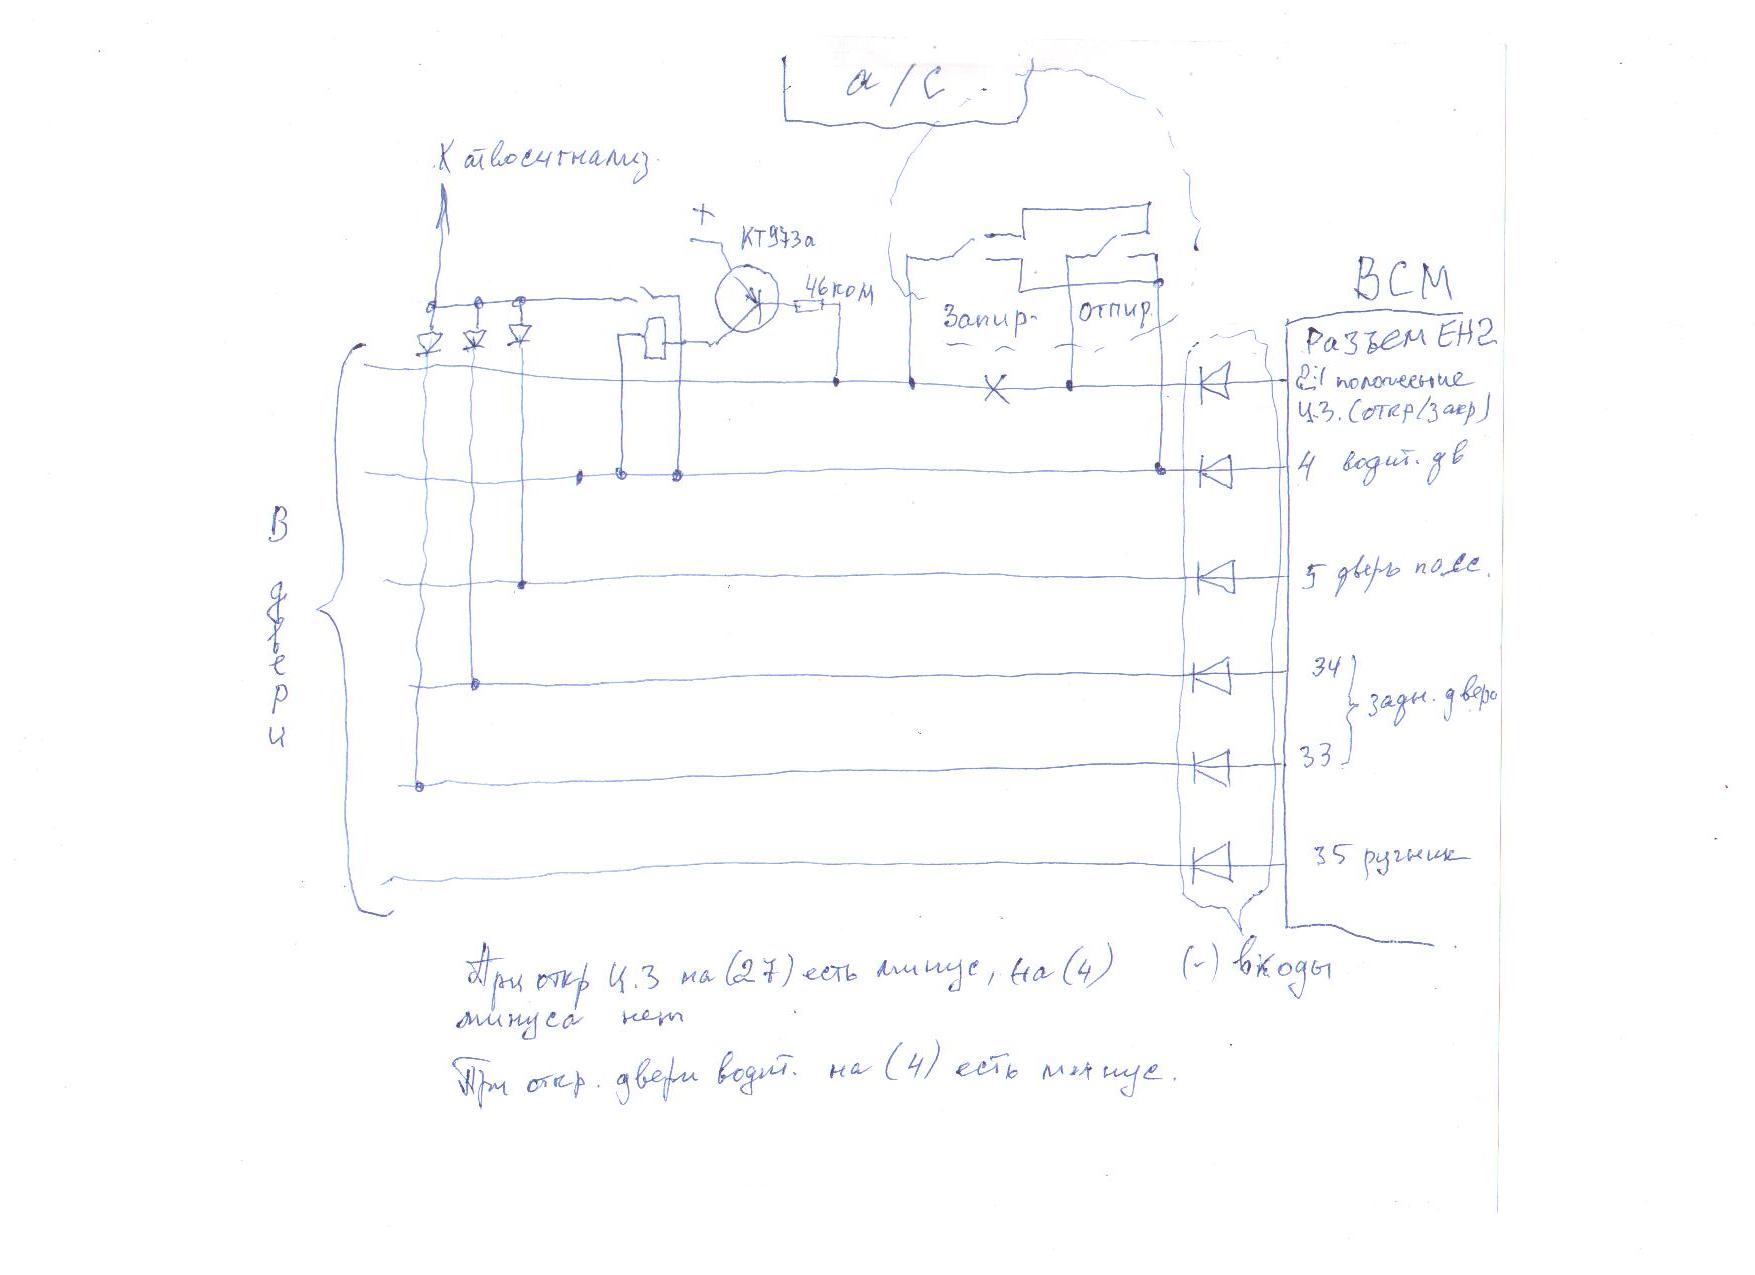 а/с
К автосигнализ.
+
КТ973а
46 ком
Запир-
отпир.
ВСМ
Разъем ЕН2
положение
Ц.З. (откр/закр)
4 водит. дв
5 дверь пасс.
34
задн. двери
33
35 ручник
В двери
При откр Ц.З на (27) есть минус, на (4)
минуса нет
(-) входы
При откр. двери водит. на (4) есть минус.